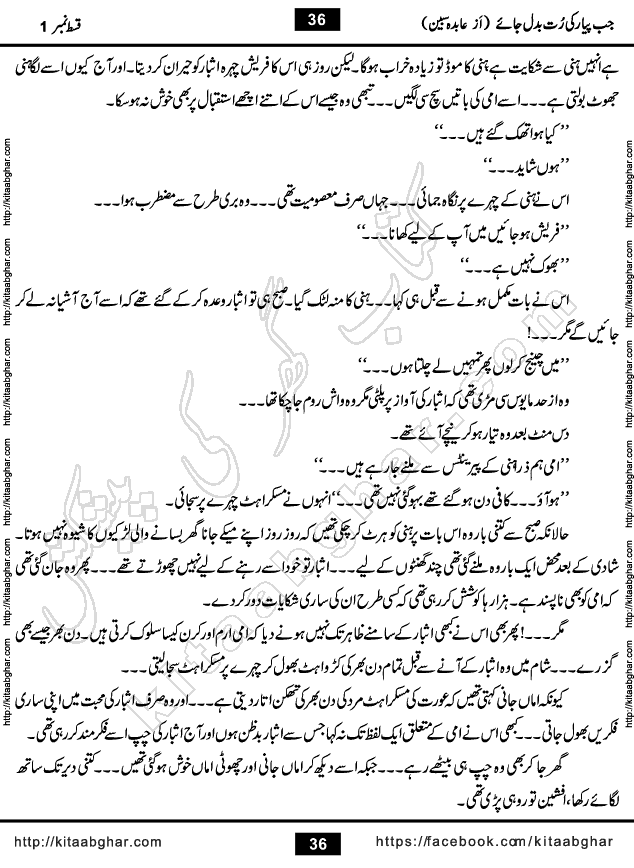 جب پیار کی رُت بدل جائے (از عابدہ سبین)
36
قسط نمبر 1
ہے انہیں ہنی سے شکایت ہے ہنی کا موڈ تو زیادہ خراب ہوگا۔ لیکن روز ہی اس کا فریش چہرہ ایثار کو حیران کردیتا۔ اور آج کیوں اسے لگا ہنی
جھوٹ بولتی ہے۔۔۔ اسے امی کی باتیں سچ سی لگیں۔۔۔ تبھی وہ جیسے اس کے اتنے اچھے استقبال پر بھی خوش نہ ہوسکا۔
’’کیا ہوا تھک گئے ہیں۔۔۔‘‘
’’ہوں شاید۔۔۔‘‘
اس نے ہنی کے چہرے پر نگاہ جمائی۔۔۔ جہاں صرف معصومیت تھی۔۔۔ وہ بری طرح سے مضطرب ہوا۔۔۔
’’فریش ہوجائیں میں آپ کے لیے کھانا۔۔۔‘‘
’’بھوک نہیں ہے۔۔۔‘‘
اس نے بات مکمل ہونے سے قبل ہی کہا۔۔۔ ہنی کا منہ لٹک گیا۔ صبح ہی تو ایثار وعدہ کرکے گئے تھے کہ اسے آج آشیانہ لے کر
جائیں گے مگر۔۔۔!
’’میں چینج کرلوں پھر تمہیں لے چلتا ہوں۔۔۔‘‘
وہ از حد مایوس سی مڑی تھی کہ ایثار کی آواز پر پلٹی مگر وہ واش روم جاچکا تھا۔۔۔
دس منٹ بعد وہ تیار ہوکر نیچے آئے تھے۔
’’امی ہم ذرا ہنی کے پیرینٹس سے ملنے جارہے ہیں۔۔۔‘‘
’’ہو آؤ۔۔۔ کافی دن ہوگئے تھے بہو گئی نہیں تھی۔۔۔‘‘ انہوں نے مسکراہٹ چہرے پر سجائی۔
حالانکہ صبح سے کتنی بار وہ اس بات پر ہنی کو ہرٹ کرچکی تھیں کہ روز روز اپنے میکے جانا گھر بسانے والی لڑکیوں کا شیوہ نہیں ہوتا۔
شادی کے بعد محض ایک بار وہ ملنے گئی تھی چند گھنٹوں کے لیے۔۔۔ ایثار تو خود اسے رہنے کے لیے نہیں چھوڑتے تھے۔۔۔ پھر وہ جان گئی تھی
کہ امی کو بھی ناپسند ہے۔ ہزارہا کوشش کررہی تھی کہ کسی طرح ان کی ساری شکایات دور کردے۔
مگر۔۔۔! پھر بھی اس نے کبھی ایثار کے سامنے ظاہر تک نہیں ہونے دیا کہ امی ارم اور کرن کیسا سلوک کرتی ہیں۔ دن بھر جیسے بھی
گزرے۔۔۔ شام میں وہ ایثار کے آنے سے قبل تمام دن بھر کی کڑواہٹ بھول کر چہرے پر مسکراہٹ سجالیتی۔۔۔
کیونکہ اماں جانی کہتی تھیں کہ عورت کی مسکراہٹ مرد کی دن بھر کی تھکن اتاردیتی ہے۔۔۔ اور وہ صرف ایثار کی محبت میں اپنی ساری
فکریں بھول جاتی۔۔۔ کبھی اس نے امی کے متعلق ایک لفظ تک نہ کہا جس سے ایثار بدظن ہوں اور آج ایثار کی چپ اسے فکرمند کررہی تھی۔
گھر جاکر بھی وہ چپ ہی بیٹھے رہے۔۔۔ جبکہ اسے دیکھ کر اماں جانی اور چھوٹی اماں خوش ہوگئی تھیں۔۔۔ کتنی دیر تک ساتھ
لگائے رکھا، افشین تو رو ہی پڑی تھی۔
http://kitaabghar.com
http://kitaabghar.com
http://kitaabghar.com
http://kitaabghar.com
http://kitaabghar.com
http://kitaabghar.com
http://kitaabghar.com
http://kitaabghar.com
http://kitaabghar.com
http://kitaabghar.com
http://kitaabghar.com
http://kitaabghar.com
کتاب گھر کی پیشکش
kitaabghar.com
http://kitaabghar.com
36
https://facebook.com/kitaabghar